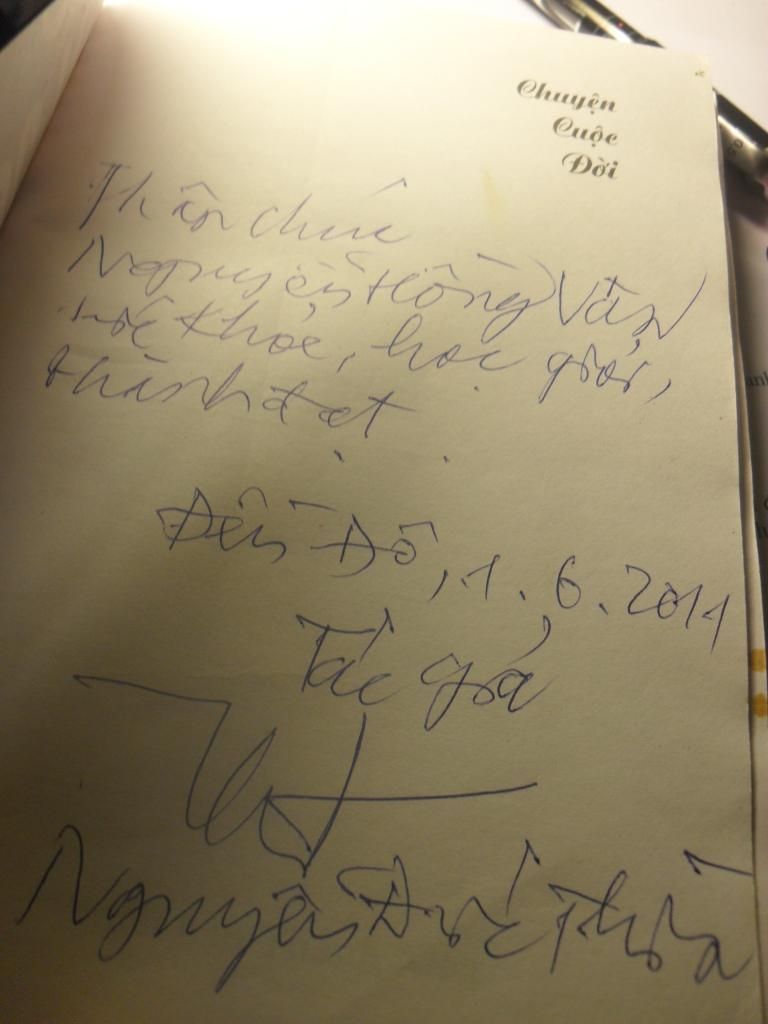 Chuyện
Cuộc
Đời
Thân chúc
Nguyễn Hồng Vân
sức khỏe, học giỏi,
thành đạt.
Đền Đô, 1.6.2011
Tác giả
Nguyễn Đức Thìn